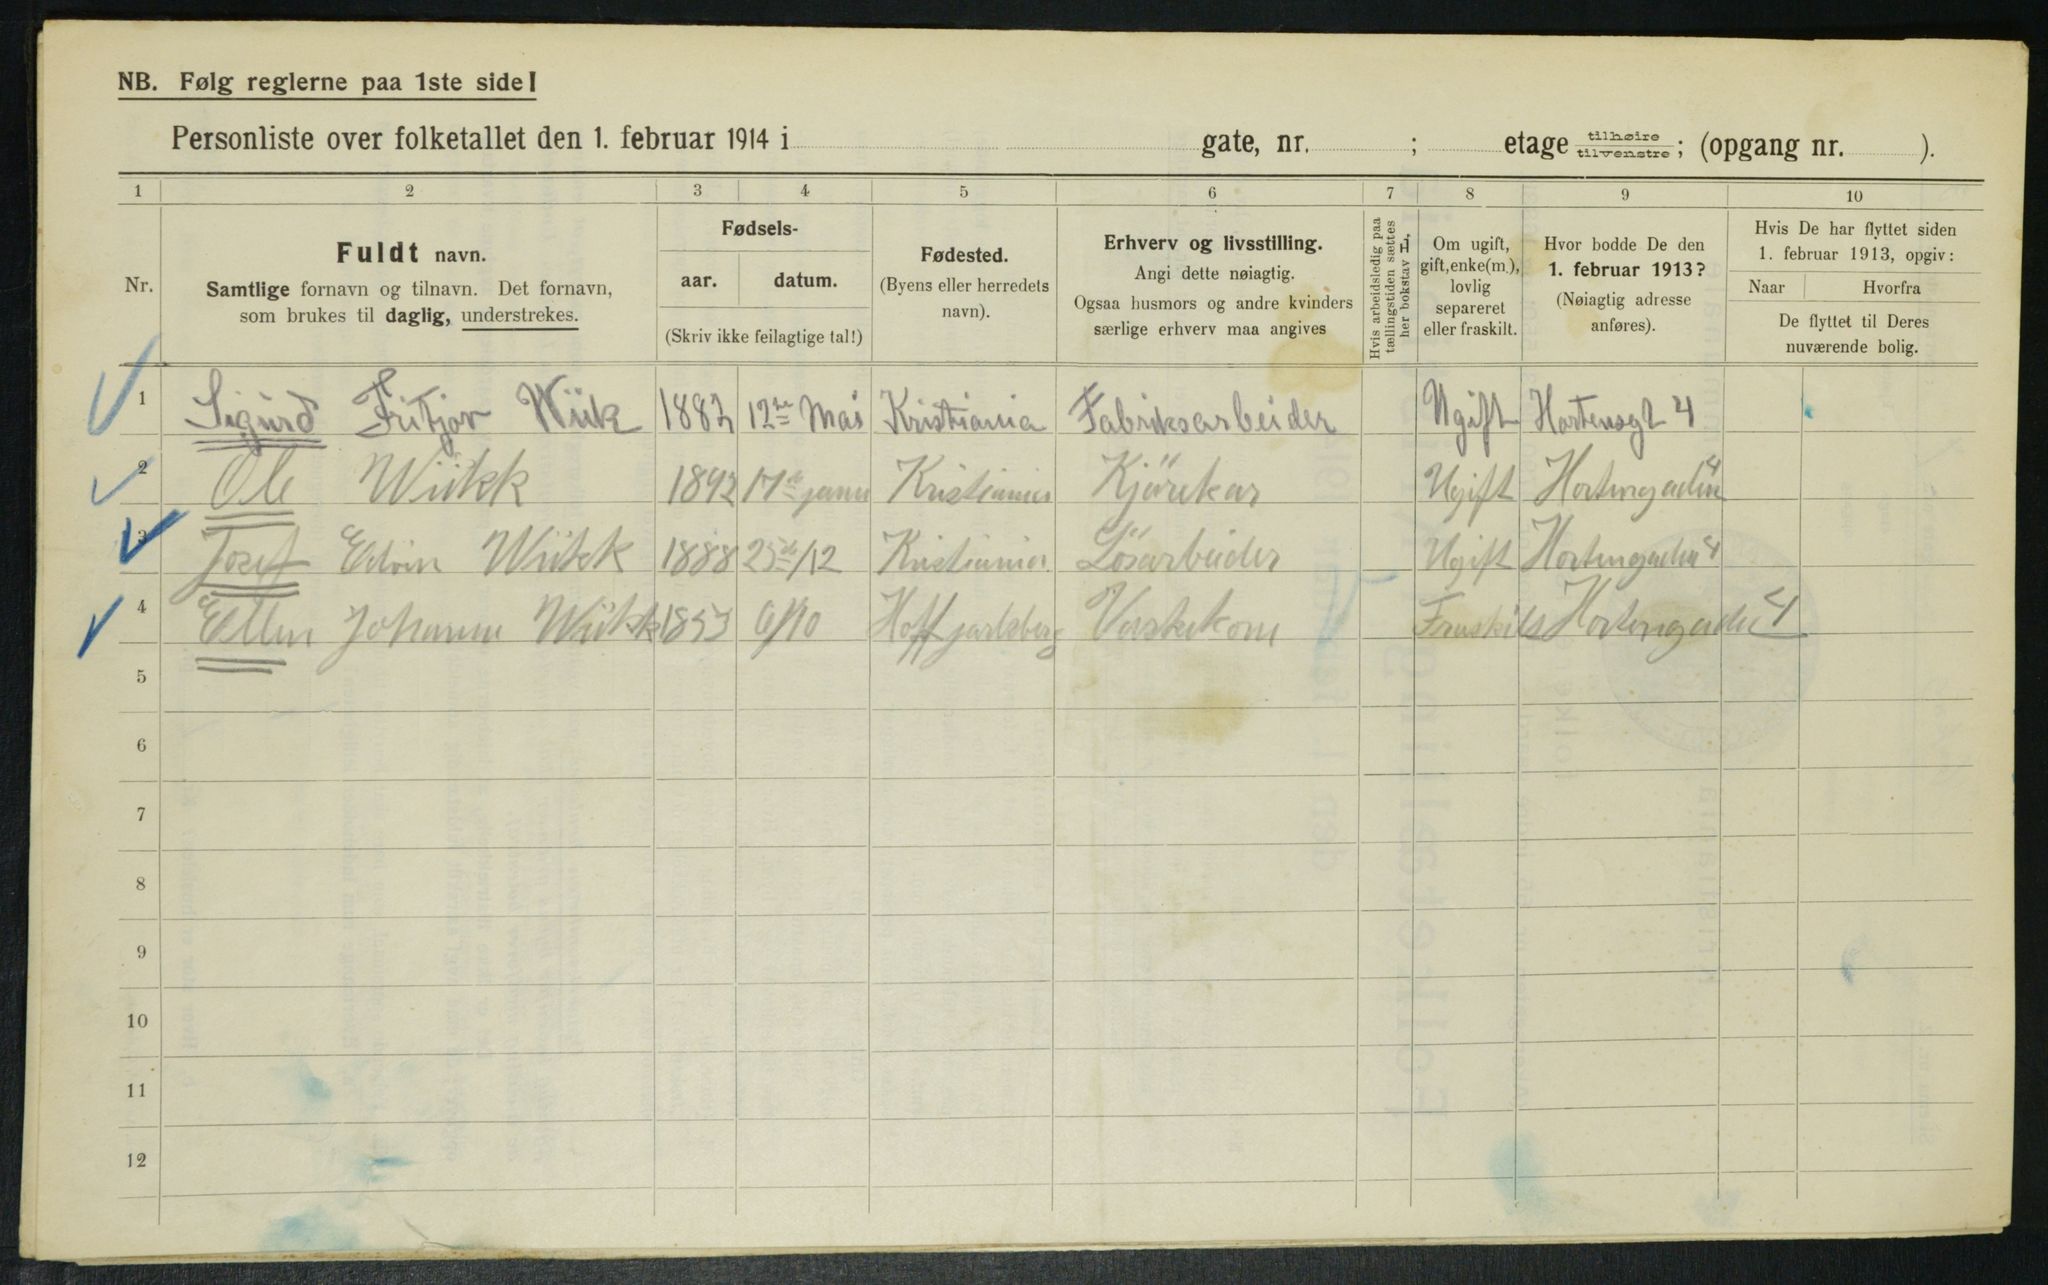 NB. Følg reglerne paa 1ste side!
Personliste over folketallet den 1. februar 1914 i gate, nr. ; etage tilhøire tilvenstre ; (opgang nr. ).
1 2 3 4 5 6 7 8 9 10
Nr.
Fuldt navn.
Samtlige fornavn og tilnavn. Det fornavn,
som brukes til daglig, understrekes.
Fødsels-
aar. datum.
(Skriv ikke feilagtige tal!)
Fødested.
(Byens eller herredets
navn).
Erhverv og livsstilling.
Angi dette nøiagtig.
Ogsaa husmors og andre kvinders
særlige erhverv maa angives
Hvis arbeidsledig paa
tællingstiden sættes
her bokstav L.
Om ugift,
gift, enke(m.),
lovlig
separeret
eller fraskilt.
Hvor bodde De den
1. februar 1913?
(Nøiagtig adresse
anføres).
Hvis De har flyttet siden
1. februar 1913, opgiv:
Naar Hvorfra
De flyttet til Deres
nuværende bolig.
1 Sigurd Fritjov Wiik 1882 12te Mai Kristiania Fabriksarbeider Ugift Hortensgt 4
2 Ole Wiikk 1892 17de janu Kristiania Kjørekar Ugift Hortengaden 4
3 Josef Edvin Wiikk 1888 25de/12 Kristiania Lösarbeider Ugift Hortengaden 4
4 Ellen Johanne Wiikk 1853 6/10 Hoff jarlsberg Vaskekone Fraskilt Hortengaden 4
5
6
7
8
9
10
11
12